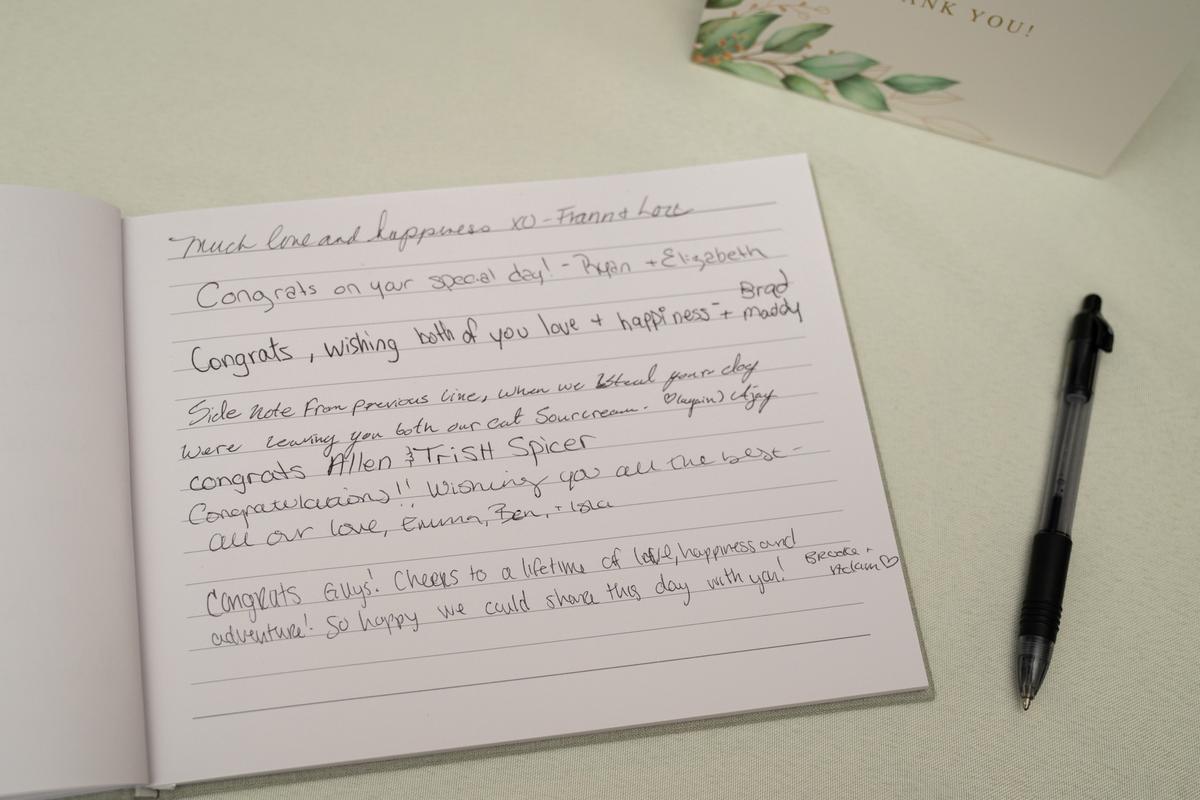 ANK YOU!
Much love and happiness XO - Frann +
Congrats on your special day! - Ryan + Elizabeth
Congrats, wishing both of you love + happiness - Brad + Maddy
Side Note From previous line, when we steal your day
were leaving you both our cat Sourcream. ♡(again) Ajay
congrats Allen & TRISH Spicer
Congratulations!! Wishing you all the best -
all our love, Emma, Ben, + Isla
Congrats Guys! Cheers to a lifetime of love, happiness and
adventure! So happy we could share this day with you! Brooke + Adam ♡